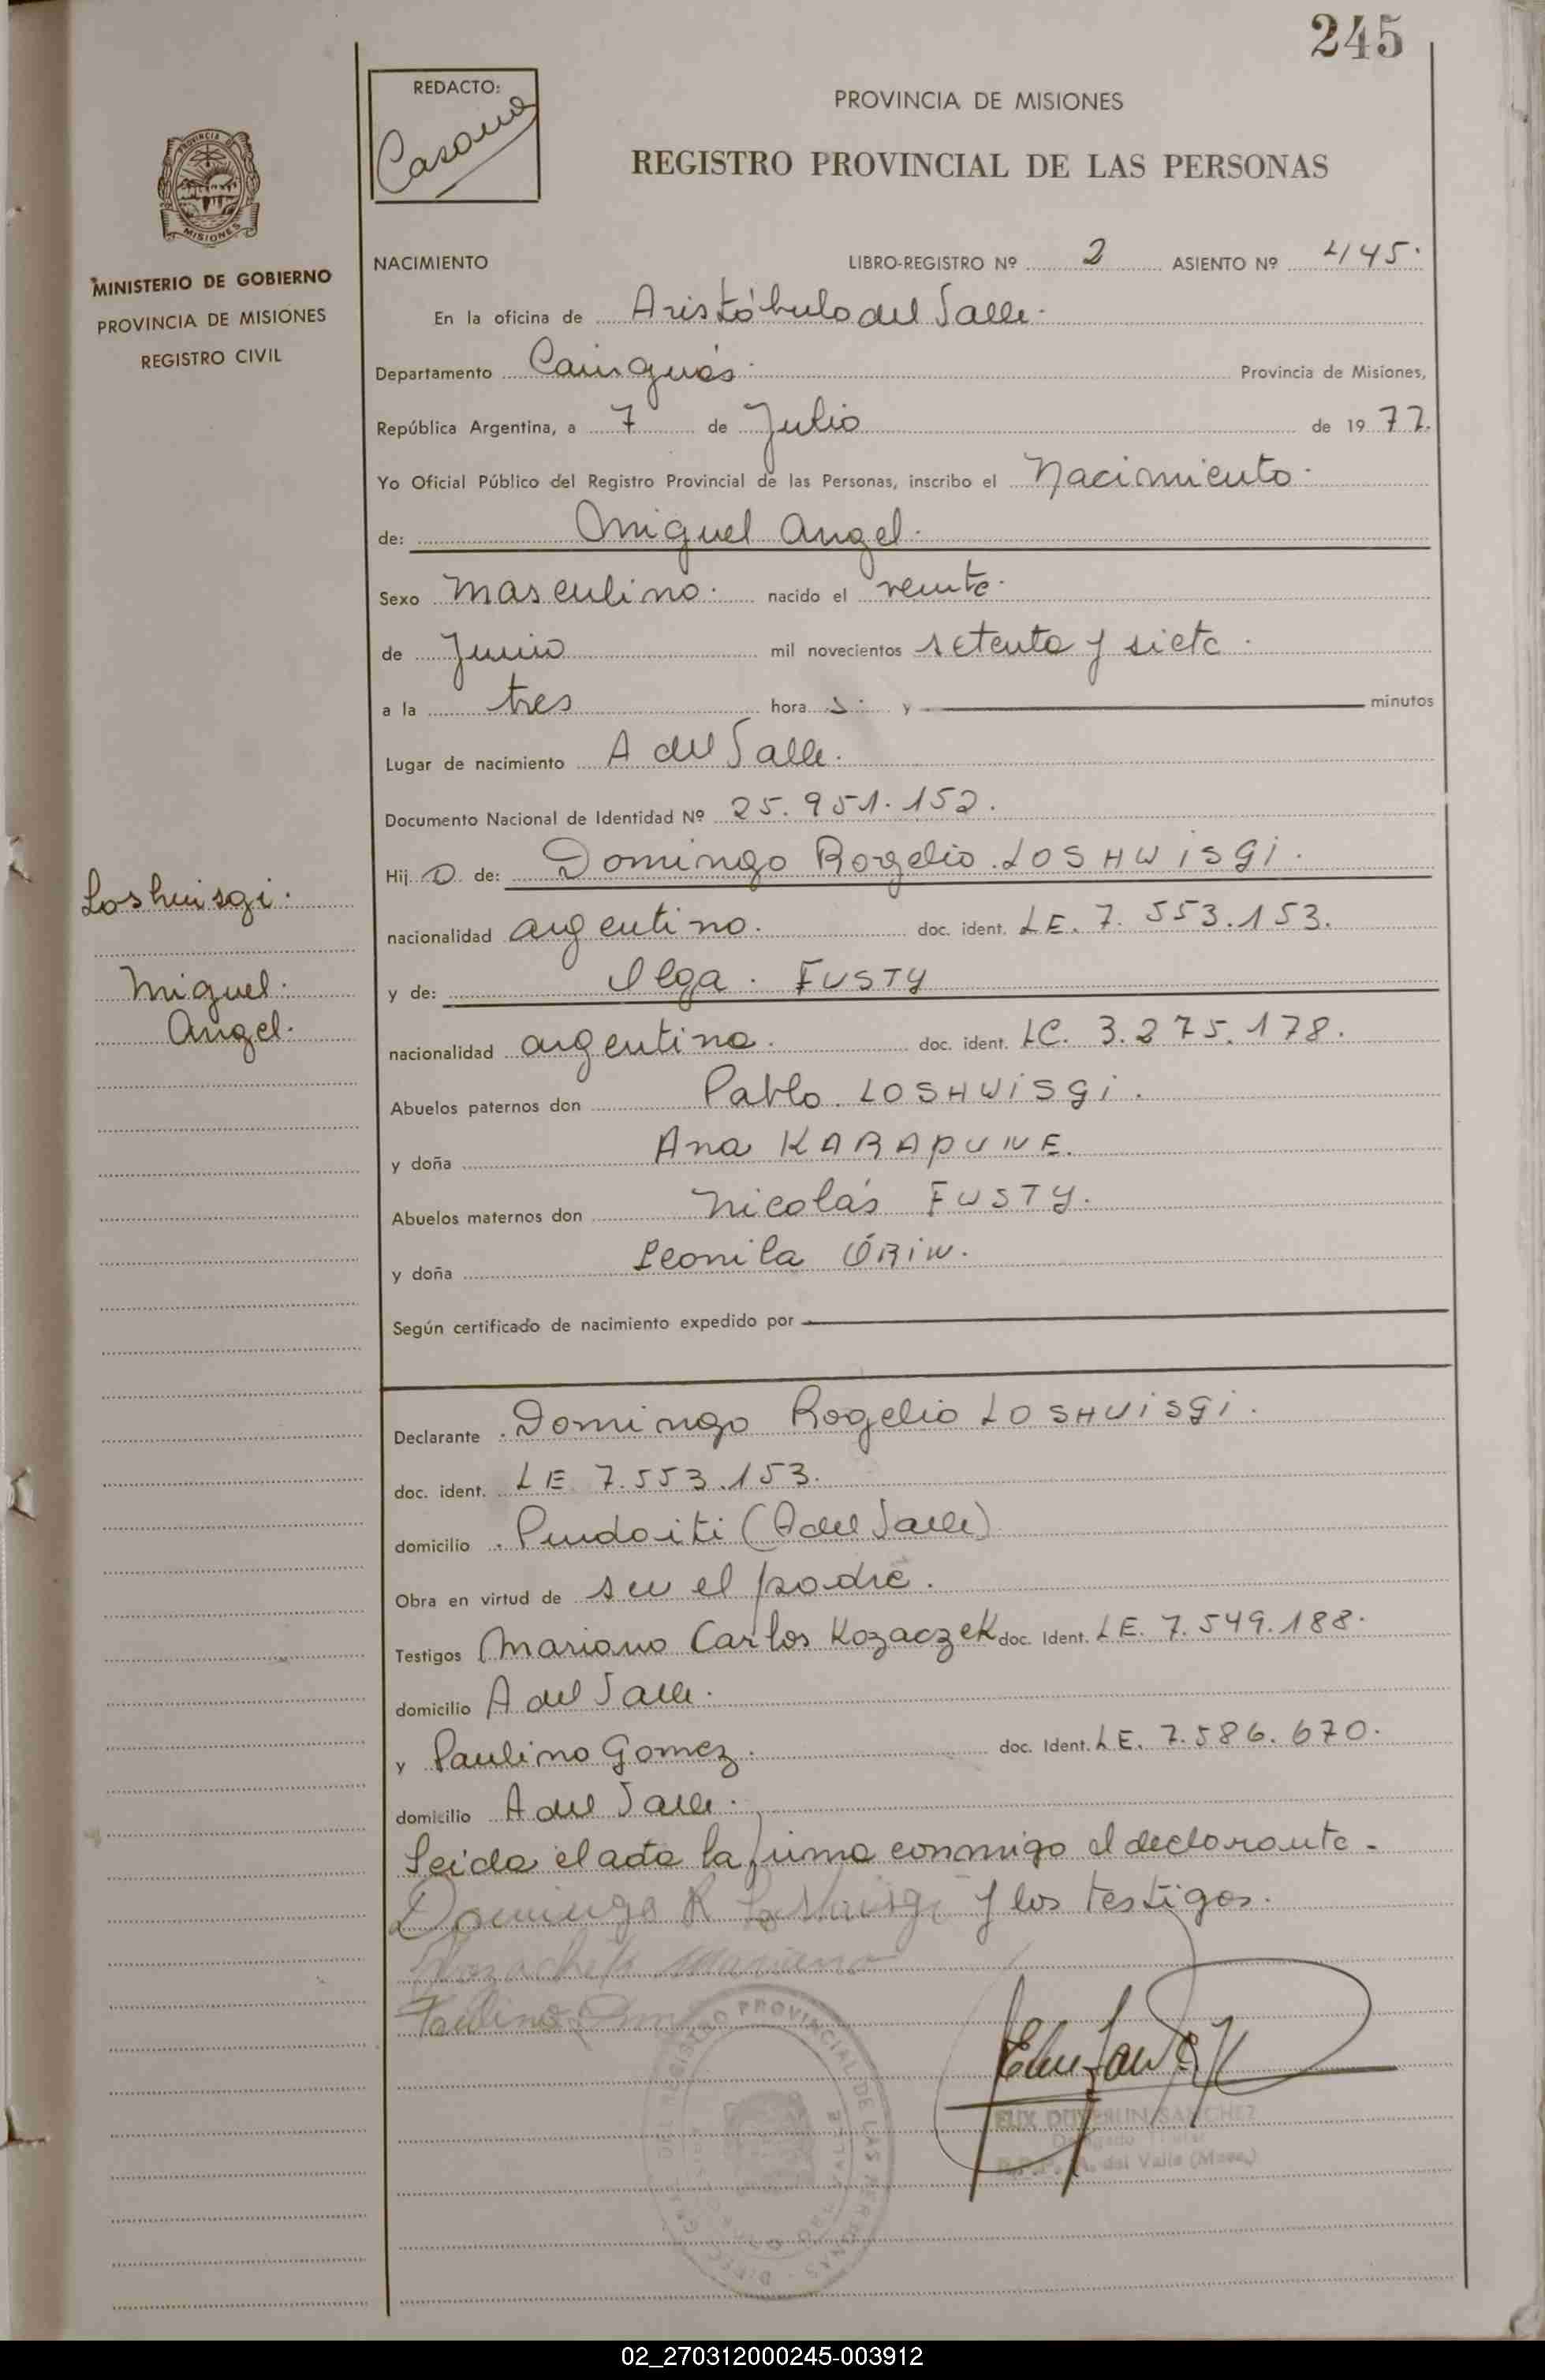 245
REDACTO:
Casana
PROVINCIA DE MISIONES
REGISTRO PROVINCIAL DE LAS PERSONAS
PROVINCIA
MISIONES
MINISTERIO DE GOBIERNO
PROVINCIA DE MISIONES
REGISTRO CIVIL
NACIMIENTO LIBRO-REGISTRO Nº 2 ASIENTO Nº 445.
En la oficina de Aristóbulo del Valle.
Departamento Cainguás. Provincia de Misiones,
República Argentina, a 7 de Julio de 1977.
Yo Oficial Público del Registro Provincial de las Personas, inscribo el Nacimiento.
de: Miguel Angel.
Sexo masculino. nacido el veinte.
de Junio mil novecientos setenta y siete.
a la tres hora s. y minutos
Lugar de nacimiento A del Valle.
Documento Nacional de Identidad Nº 25.951.152.
Hij o de: Domingo Rogelio LOSHUISGI.
nacionalidad argentino. doc. ident. LE. 7.553.153.
y de: Olga. FUSTY
nacionalidad argentina. doc. ident. LC. 3.275.178.
Abuelos paternos don Pablo LOSHUISGI.
y doña Ana KARAPUNE.
Abuelos maternos don Nicolás FUSTY.
y doña Leonila
Según certificado de nacimiento expedido por
Loshuisgi.
Miguel.
Angel.
Declarante Domingo Rogelio LOSHUISGI.
doc. ident. LE 7.553.153.
domicilio Pindoiti (A del Valle)
Obra en virtud de ser el padre.
Testigos Mariano Carlos Kozaczek doc. Ident. LE. 7.549.188.
domicilio A del Valle.
y Paulino Gomez. doc. Ident. LE. 7.586.670.
domicilio A del Valle.
Leida el acta la firma conmigo el declarante
Domingo R Loshuisgi y los testigos.
Kozachek Mariano
Paulino
REGISTRO PROVINCIAL DE LAS PERSONAS
SANCHEZ
A. del Valle (Mnes.)
02_270312000245-003912